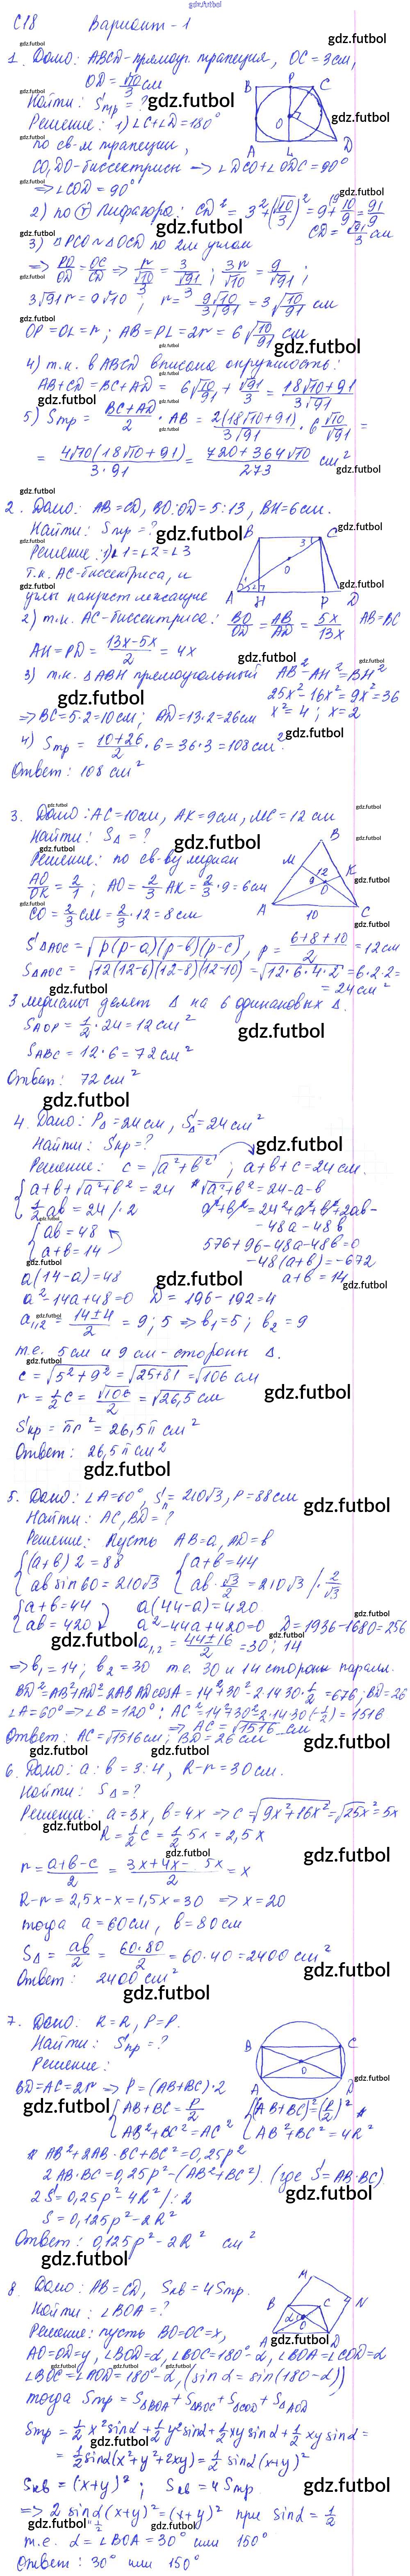 gdz.futbol
С18 Вариант - 1
1. Дано: ABCD - прямоуг. трапеция, OC = 3 см,
OD = √10/3 см
Найти: Sтр = ?
Решение: 1) ∠C + ∠D = 180°
по св-м трапеции,
CO, DO - биссектрисы → ∠DCO + ∠ODC = 90°
→ ∠COD = 90°
2) по т Пифагора: CD² = 3² + (√10/3)² = 9 + 10/9 = 91/9
CD = √91/3 см
3) △PCO ~ △OCD по 2м углам
→ PO/OD = OC/CD → r/(√10/3) = 3/(√91/3); 3r/√10 = 9/√91;
3√91 r = 9√10; r = 9√10/3√91 = 3√(10/91) см
OP = OL = r; AB = PL = 2r = 6√(10/91) см
4) т.к. в ABCD вписана окружность:
AB + CD = BC + AD = 6√10/√91 + √91/3 = (18√10 + 91)/3√91
5) Sтр = (BC + AD)/2 · AB = 2(18√10 + 91)/3√91 · 6√10/√91 =
= 4√10(18√10 + 91)/3·91 = (720 + 364√10)/273 см²
2. Дано: AB = CD, BO:OD = 5:13, BH = 6 см.
Найти: Sтр = ?
Решение: 1) ∠1 = ∠2 = ∠3
т.к. AC - биссектриса, и
углы накрест лежащие
2) т.к. AC - биссектриса: BO/OD = AB/AD = 5x/13x AB = BC
AH = PD = (13x - 5x)/2 = 4x
3) т.к. △ABH прямоугольный AB² - AH² = BH²
25x² - 16x² = 9x² = 36
x² = 4; x = 2
→ BC = 5·2 = 10 см; AD = 13·2 = 26 см
4) Sтр = (10 + 26)/2 · 6 = 36·3 = 108 см².
Ответ: 108 см²
3. Дано: AC = 10 см, AK = 9 см, MC = 12 см
Найти: S△ = ?
Решение: по св-ву медиан
AO/OK = 2/1; AO = 2/3 AK = 2/3 · 9 = 6 см
CO = 2/3 CM = 2/3 · 12 = 8 см
S△AOC = √(p(p-a)(p-b)(p-c)), p = (6+8+10)/2 = 12 см
S△AOC = √(12(12-6)(12-8)(12-10)) = √(12·6·4·2) = 6·2·2 =
= 24 см²
3 медианы делят △ на 6 одинаковых △.
SAOP = 1/2 · 24 = 12 см²
SABC = 12·6 = 72 см²
Ответ: 72 см²
4. Дано: P△ = 24 см, S△ = 24 см²
Найти: Sкр = ?
Решение: c = √(a² + b²); a + b + c = 24 см.
{a + b + √(a² + b²) = 24 * √(a² + b²) = 24 - a - b
{1/2 ab = 24 /·2 a² + b² = 24² + a² + b² + 2ab -
-48a - 48b
{ab = 48
{a + b = 14
576 + 96 - 48a - 48b = 0
-48(a + b) = -672
a + b = 14
a(14 - a) = 48
a² - 14a + 48 = 0 D = 196 - 192 = 4
a1,2 = (14 ± 4)/2 = 9; 5 → b1 = 5; b2 = 9
т.е. 5 см и 9 см - стороны △.
c = √(5² + 9²) = √(25 + 81) = √106 см
r = 1/2 c = √106/2 = √26,5 см
Sкр = πr² = 26,5π см²
Ответ: 26,5π см²
5. Дано: ∠A = 60°, Sп = 210√3, P = 88 см
Найти: AC, BD = ?
Решение: Пусть AB = a, AD = b
{(a + b)2 = 88 {a + b = 44
{ab sin 60 = 210√3 {ab · √3/2 = 210√3 /· 2/√3
{a + b = 44 a(44 - a) = 420
{ab = 420 a² - 44a + 420 = 0 D = 1936 - 1680 = 256
a1,2 = (44 ± 16)/2 = 30; 14
→ b1 = 14; b2 = 30 т.е. 30 и 14 стороны паралл.
BD² = AB² + AD² - 2AB·AD cosA = 14² + 30² - 2·14·30·1/2 = 676; BD = 26
∠A = 60° → ∠B = 120°; AC² = 14² + 30² - 2·14·30·(-1/2) = 1516
→ AC = √1516 см
Ответ: AC = √1516 см; BD = 26 см
6. Дано: a:b = 3:4, R - r = 30 см.
Найти: S△ = ?
Решение: a = 3x, b = 4x → c = √(9x² + 16x²) = √25x² = 5x
R = 1/2 c = 1/2 · 5x = 2,5x
r = (a + b - c)/2 = (3x + 4x - 5x)/2 = x
R - r = 2,5x - x = 1,5x = 30 → x = 20
тогда a = 60 см, b = 80 см
S△ = ab/2 = 60·80/2 = 60·40 = 2400 см²
Ответ: 2400 см²
7. Дано: R = R, P = P.
Найти: Sпр = ?
Решение:
BD = AC = 2r → P = (AB + BC)·2
{AB + BC = P/2 {(AB + BC)² = (P/2)² *
{AB² + BC² = AC² {AB² + BC² = 4R²
* AB² + 2AB·BC + BC² = 0,25p²
2AB·BC = 0,25p² - (AB² + BC²). (где S = AB·BC)
2S = 0,25p² - 4R² /:2
S = 0,125p² - 2R²
Ответ: 0,125p² - 2R² см²
8. Дано: AB = CD, Sкв = 4Sтр.
Найти: ∠BOA = ?
Решение: пусть BO = OC = x,
AO = OD = y, ∠BOD = α, ∠BOC = 180° - α, ∠BOA = ∠COD = α
∠BOC = ∠AOD = 180° - α, (sin α = sin(180 - α))
тогда Sтр = S△BOA + S△BOC + S△COD + S△AOD
Sтр = 1/2 x² sin α + 1/2 y² sin α + 1/2 xy sin α + 1/2 xy sin α =
= 1/2 sin α (x² + y² + 2xy) = 1/2 sin α (x + y)²
Sкв = (x + y)²; Sкв = 4Sтр
→ 2 sin α (x + y)² = (x + y)² при sin α = 1/2
т.е. α = ∠BOA = 30° или 150°
Ответ: 30° или 150°